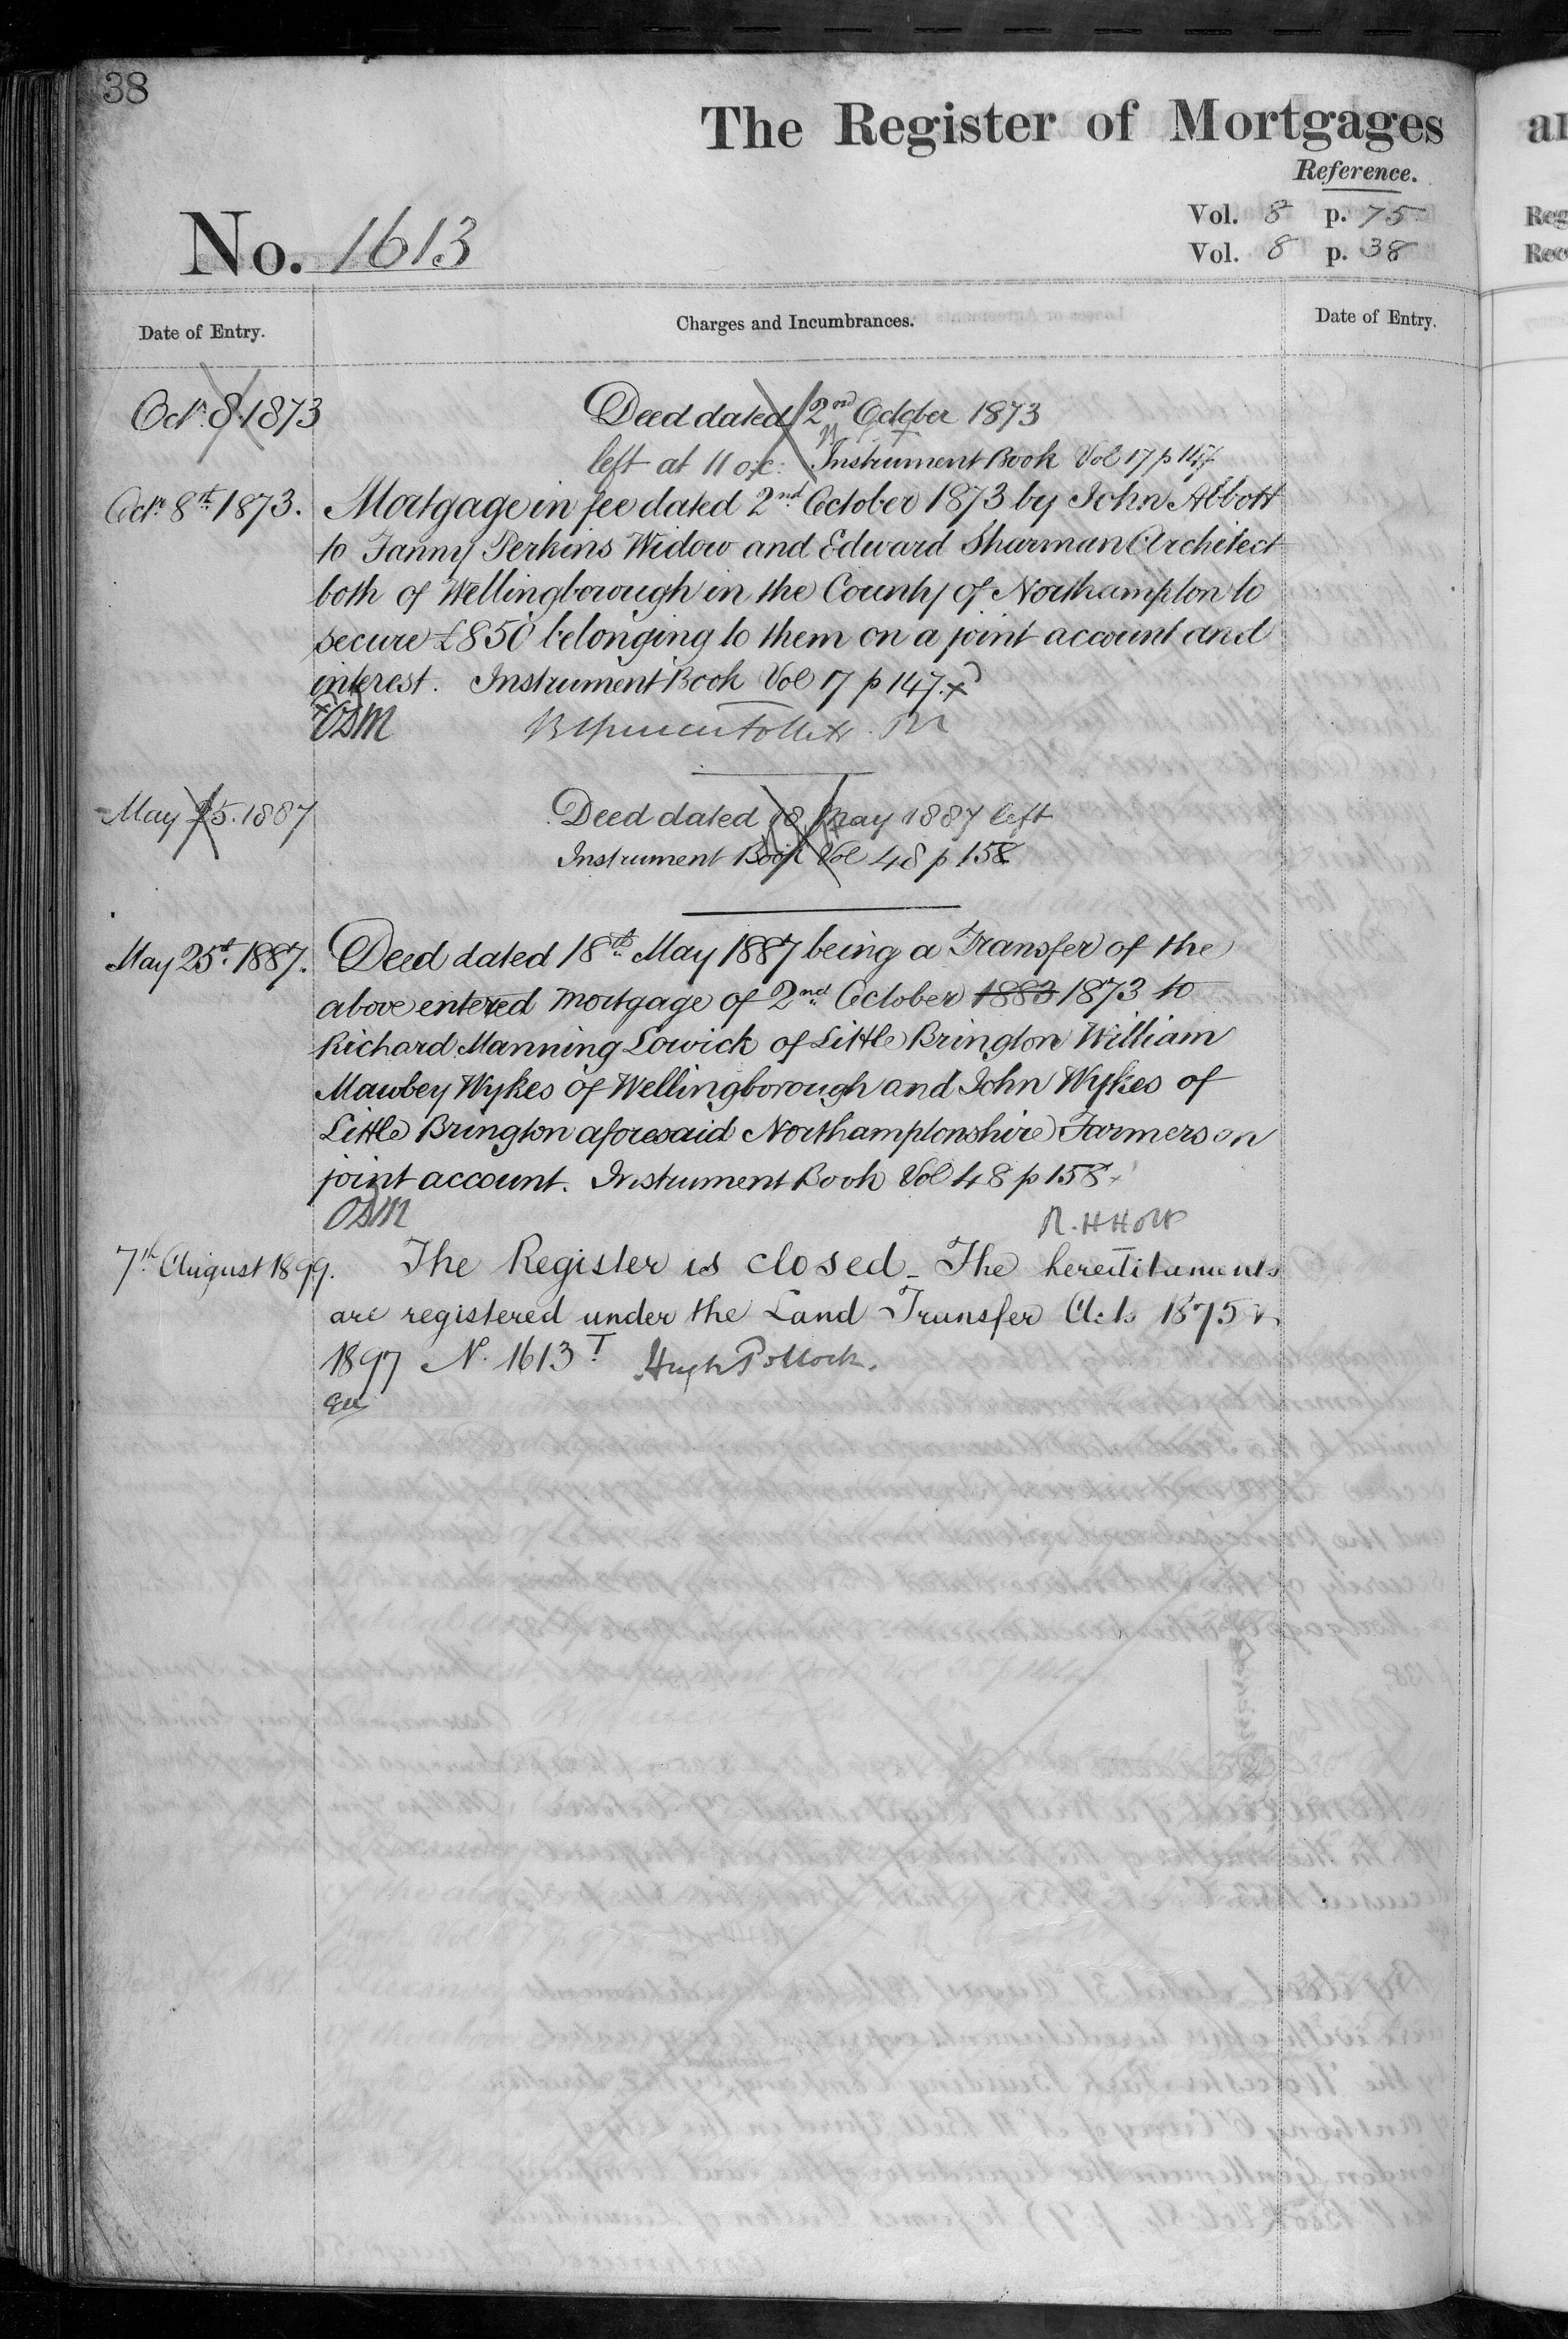 38
The Register of Mortgages
Reference.
No. 1613
Vol. 8 p. 75
Vol. 8 p. 38
Date of Entry.
Charges and Incumbrances.
Date of Entry.
Octr. 8. 1873
Deed dated 2nd October 1873
left at 11 o'c: Instrument Book Vol 17 p 147
Octr. 8th 1873. Mortgage in fee dated 2nd October 1873 by John Abbott
to Fanny Perkins Widow and Edward Sharman Architect
both of Wellingborough in the County of Northampton to
secure £850 belonging to them on a joint account and
interest. Instrument Book Vol 17 p 147. x
x ODM
May 25. 1887
Deed dated 18 May 1887 left
Instrument Book Vol 48 p 158
May 25th 1887. Deed dated 18th May 1887 being a Transfer of the
above entered mortgage of 2nd October 1883 1873 to
Richard Manning Lowick of Little Brington William
Mawbey Wykes of Wellingborough and John Wykes of
Little Brington aforesaid Northamptonshire Farmers on
joint account. Instrument Book Vol 48 p 158
ODM R. H Holt
7th August 1899. The Register is closed - The hereditaments
are registered under the Land Transfer Acts 1875 &
1897 N. 1613T Hugh Pollock.